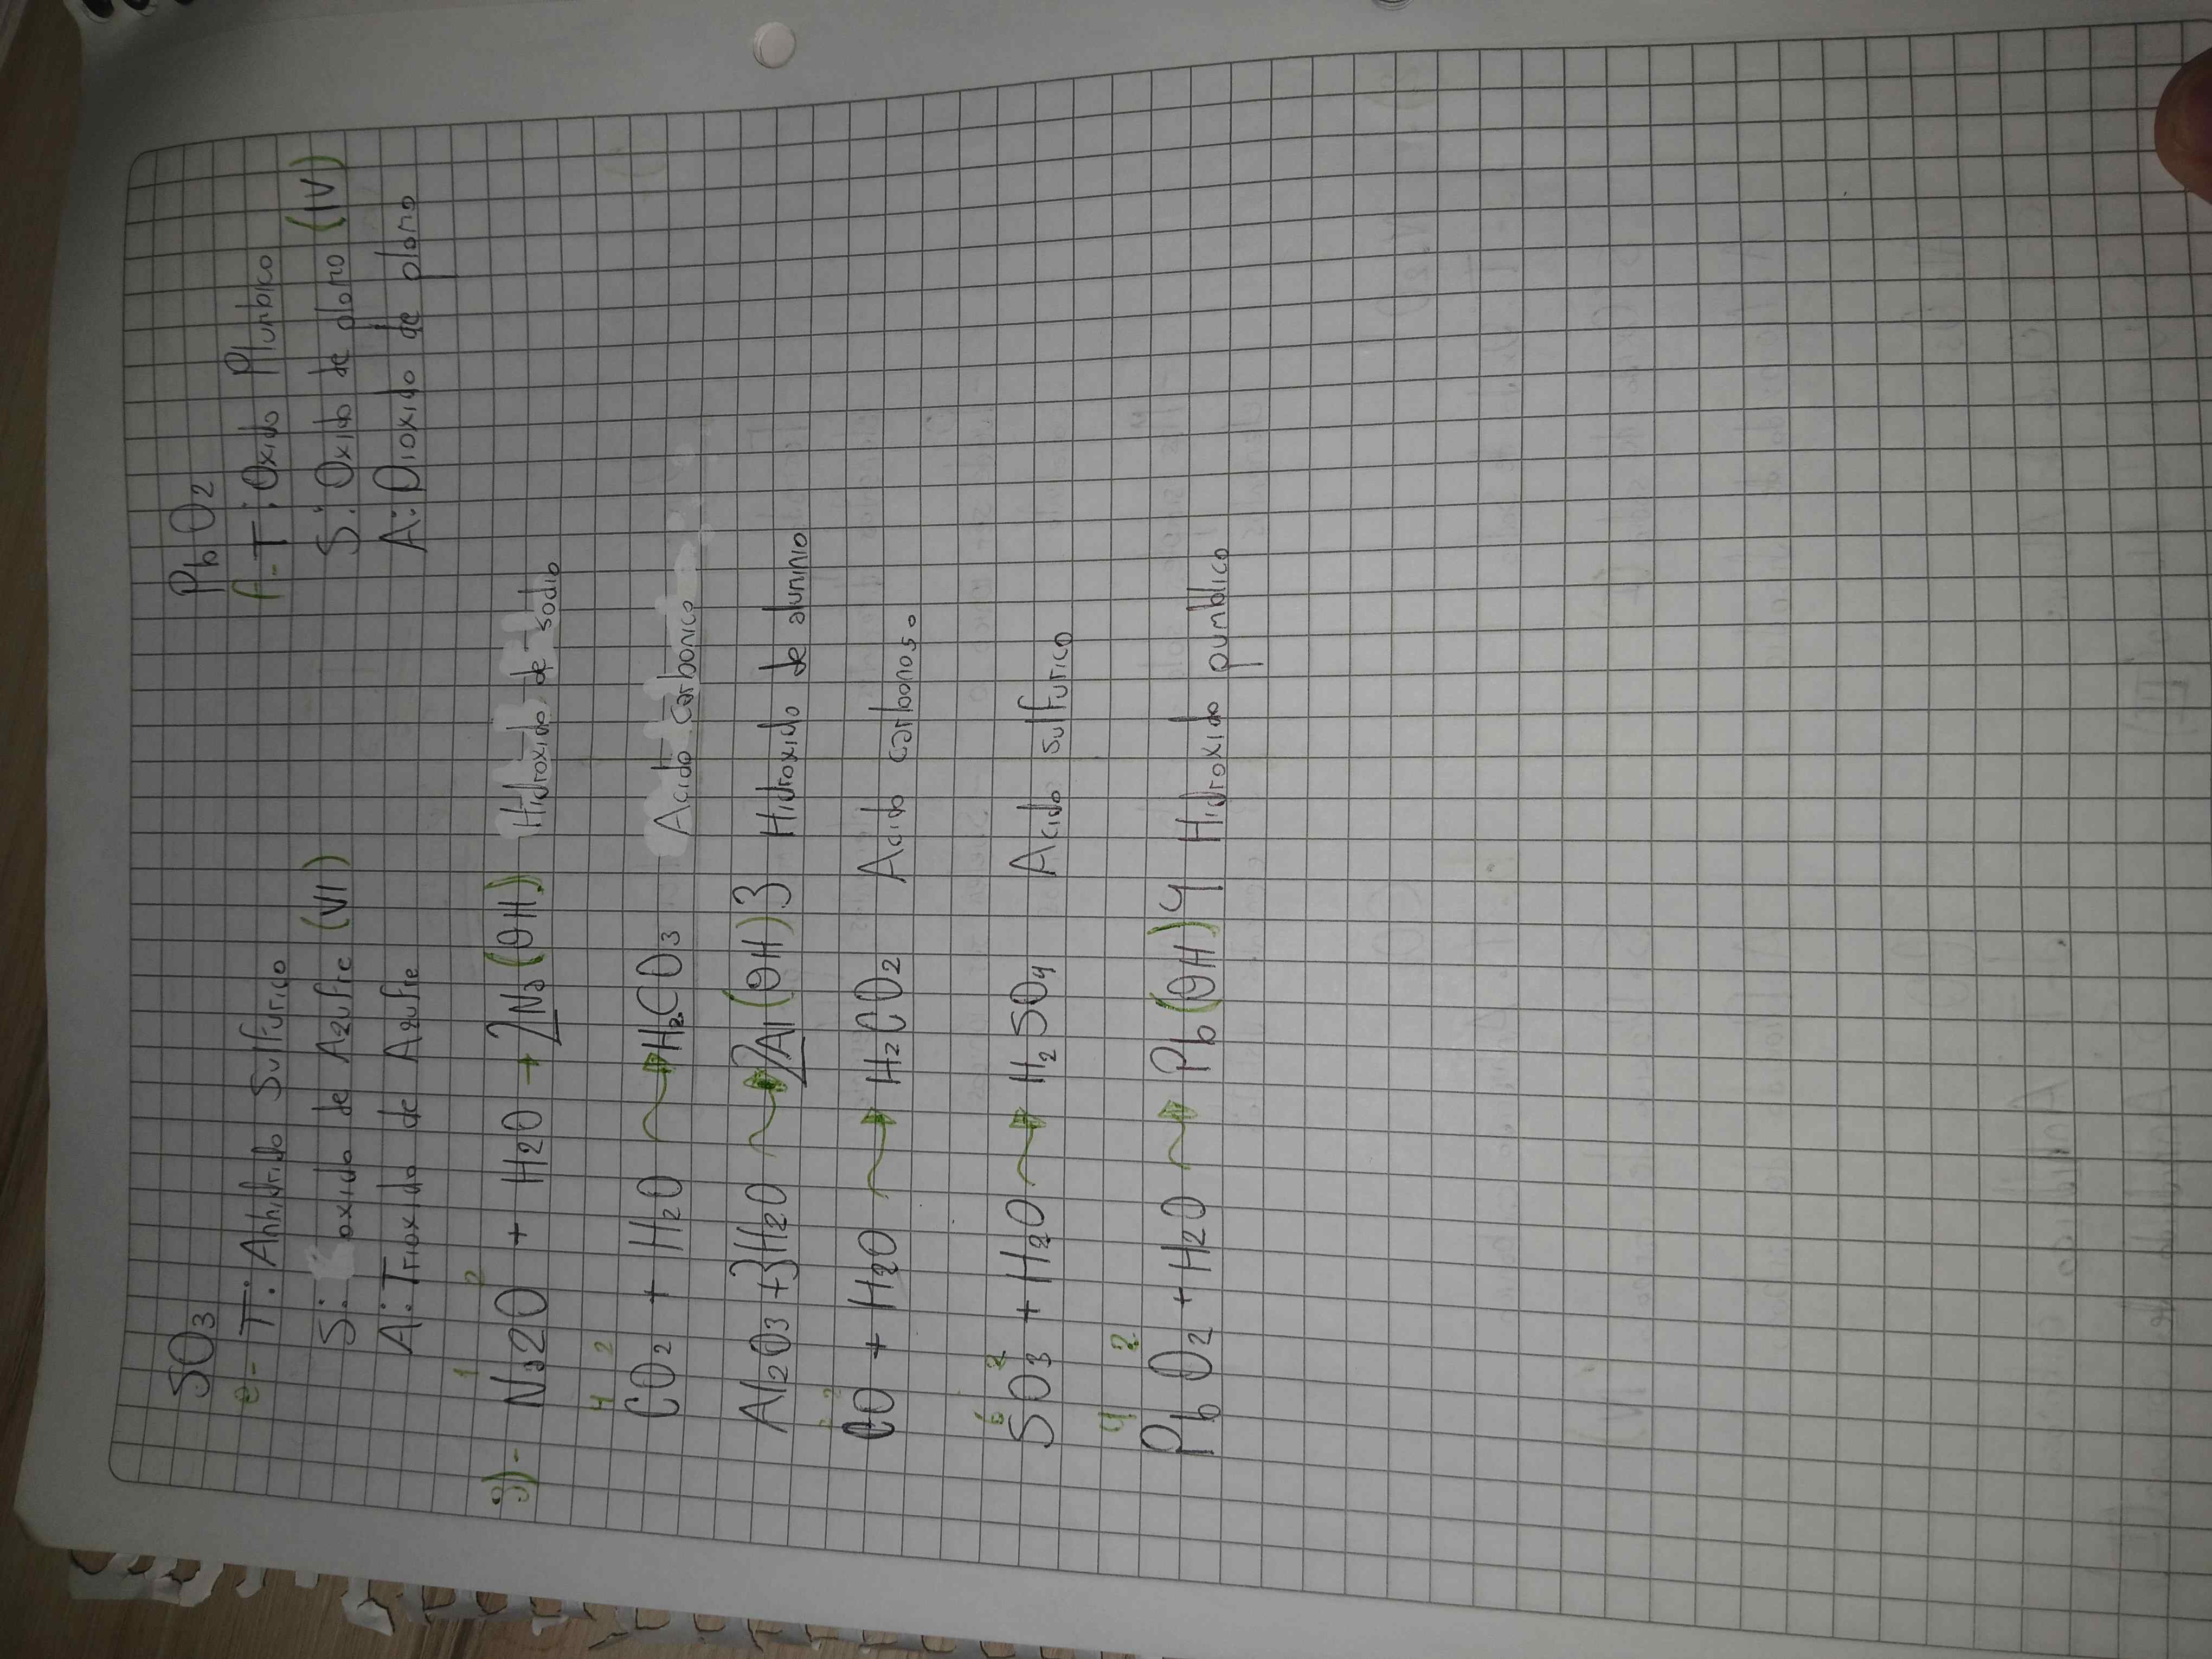 SO3
e- T: Anhidrido Sulfurico
S: oxido de Azufre (VI)
A: Trioxido de Azufre
PbO2
f- T: Oxido Plumbico
S: Oxido de plomo (IV)
A: Dioxido de plomo
1 2
3)- Na2O + H2O → 2Na(OH) Hidroxido de sodio
4 2
CO2 + H2O → H2CO3 Acido carbonico
Al2O3 + 3H2O → 2Al(OH)3 Hidroxido de aluminio
CO + H2O → H2CO2 Acido carbonoso
6 2
SO3 + H2O → H2SO4 Acido sulfurico
4 2
PbO2 + H2O → Pb(OH)4 Hidroxido pumblico